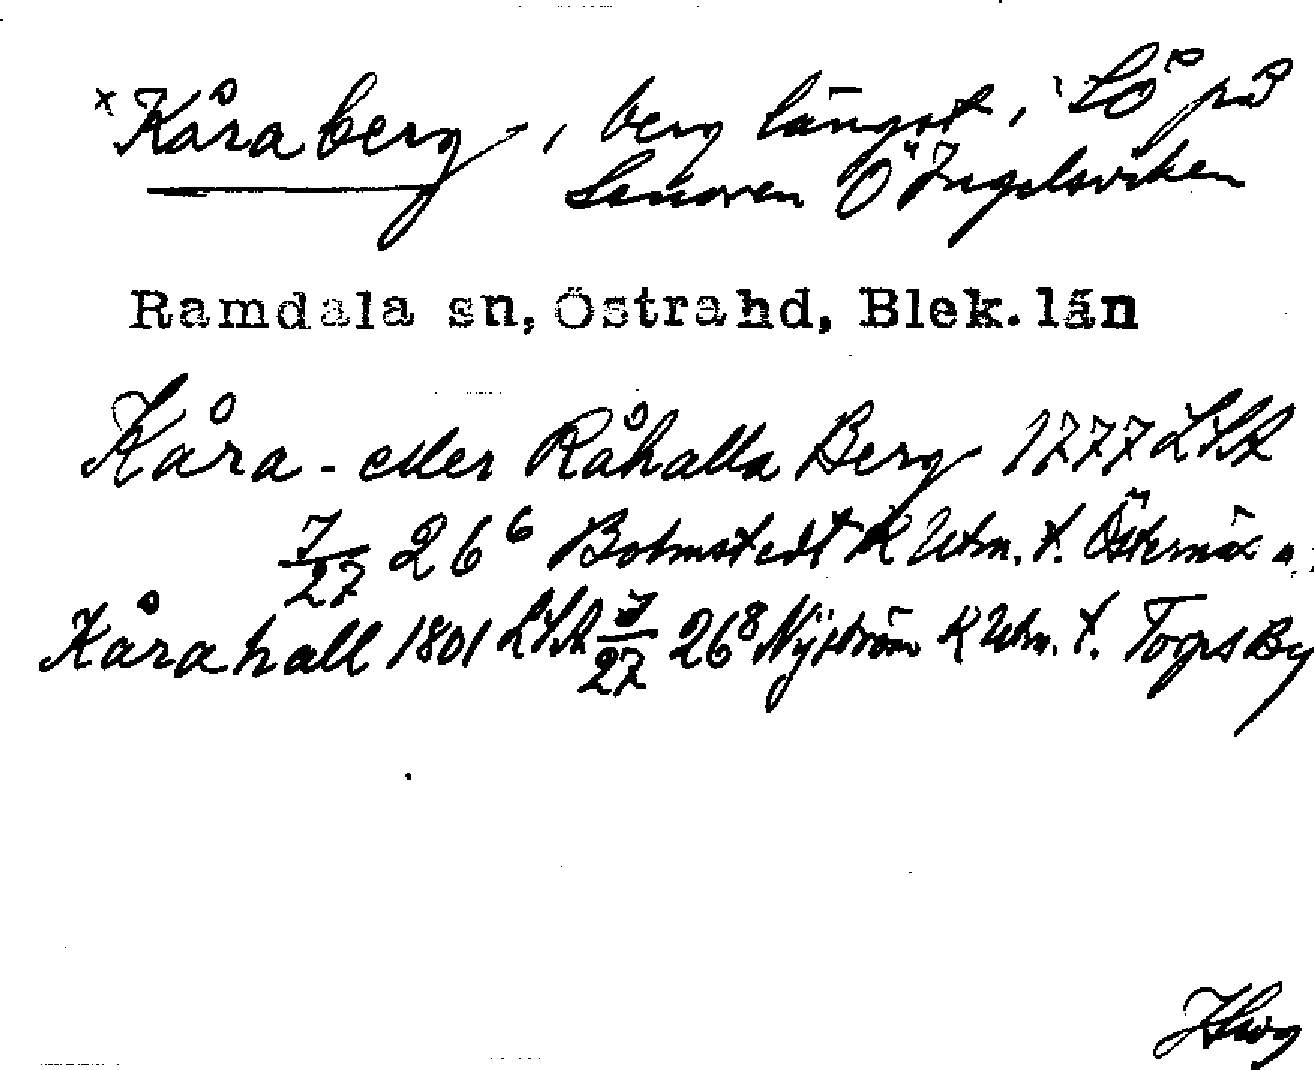 x Kåraberg, berg längst i SÖ på
Senoren Ö Ingelsviken
Ramdala sn, Östra hd, Blek. län
Kåra- eller Råhalla Berg 1777 LSA
7/27 26⁶ Bohmstedt K Utm. t. Östernäs
Kårahall 1801 LSA 7/27 26⁸ Nyström K Utm. t. Torps By